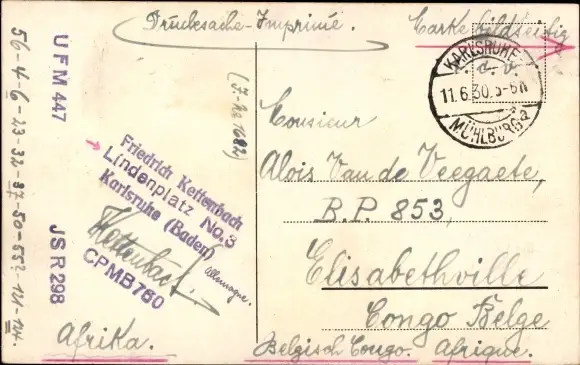 Drucksache-Imprimé.
Carte bildseitig
KARLSRUHE
11.6.30.5-6N
MÜHLBURG
a
UFM 447
JSR 298
56-4-6-23-32-37-50-55?-121-124.
Friedrich Kettenbach
Lindenplatz No.3
Karlsruhe (Baden)
Allemagne.
Kettenbach.
CPMB 760
Monsieur
Alois Van de Veegaete,
B.P. 853,
Elisabethville
Congo Belge
Afrika.
Belgisch Congo. Afrique.